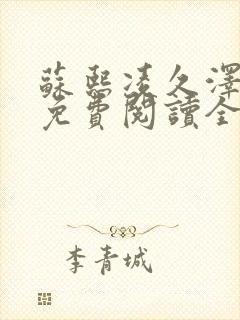 蘇熙凌久澤
免費閱讀全
李青城